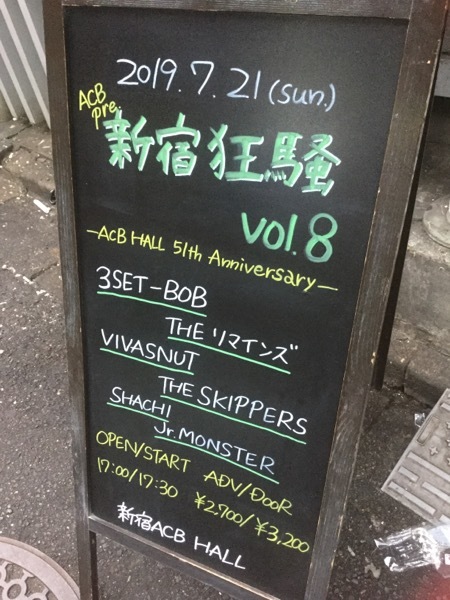 2019.7.21(sun.)
ACB
pre.
新宿狂騒
vol.8
—ACB HALL 51th Anniversary—
3SET-BOB
THE リマインズ
VIVASNUT
THE SKIPPERS
SHACHI
Jr.MONSTER
OPEN/START ADV/DOOR
17:00/17:30 ¥2,700/¥3,200
新宿ACB HALL